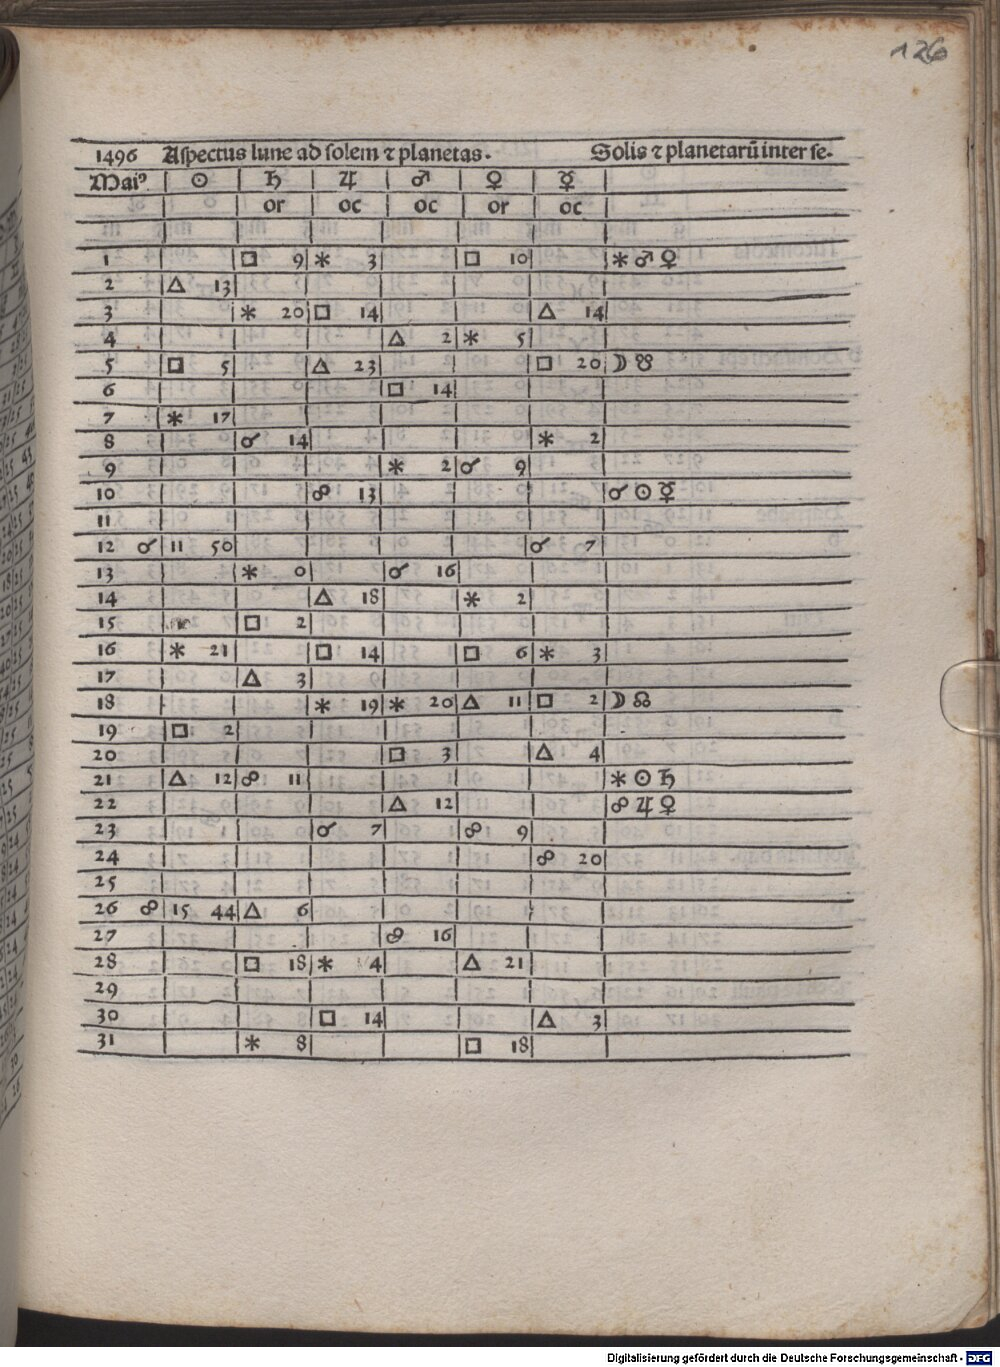 126
1496 Aspectus lune ad solem ⁊ planetas. Solis ⁊ planetarū inter se.
Maiꝰ ☉ ♄ ♃ ♂ ♀ ☿
or oc oc or oc
1 □ 9 ⚹ 3 □ 10 ⚹ ♂ ♀
2 △ 13
3 ⚹ 20 □ 14 △ 14
4 △ 2 ⚹ 5
5 □ 5 △ 23 □ 20 ☽ ☋
6 □ 14
7 ⚹ 17
8 ☌ 14 ⚹ 2
9 ⚹ 2 ☌ 9
10 ☍ 13 ☌ ☉ ☿
11
12 ☌ 11 50 ☌ 7
13 ⚹ 0 ☌ 16
14 △ 18 ⚹ 2
15 □ 2
16 ⚹ 21 □ 14 □ 6 ⚹ 3
17 △ 3
18 ⚹ 19 ⚹ 20 △ 11 □ 2 ☽ ☊
19 □ 2
20 □ 3 △ 4
21 △ 12 ☍ 11 ⚹ ☉ ♄
22 △ 12 ☍ ♃ ♀
23 ☌ 7 ☍ 9
24 ☍ 20
25
26 ☍ 15 44 △ 6
27 ☍ 16
28 □ 18 ⚹ 4 △ 21
29
30 □ 14 △ 3
31 ⚹ 8 □ 18
Digitalisierung gefördert durch die Deutsche Forschungsgemeinschaft - DFG